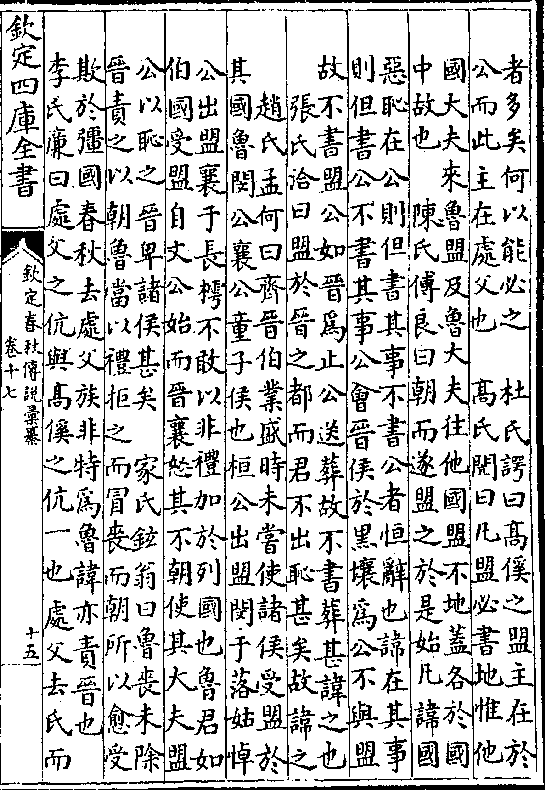 者多矣何以能必之　杜氏諤曰高傒之盟主在於
公而此主在處父也　高氏閌曰凡盟必書地惟他
國大夫來魯盟及魯大夫往他國盟不地蓋各於國
中故也　陳氏傅良曰朝而遂盟之於是始凡諱國
惡恥在公則但書其事不書公者恒辭也諱在其事
則但書公不書其事公會晉侯於黑壤為公不與盟
故不書盟公如晉為止公送葬故不書葬甚諱之也
張氏洽曰盟於晉之都而君不出恥甚矣故諱之
趙氏孟何曰齊晉伯業盛時未嘗使諸侯受盟於
其國魯閔公襄公童子侯也桓公出盟閔于落姑悼
公出盟襄于長樗不敢以非禮加於列國也魯君如
伯國受盟自文公始而晉襄怒其不朝使其大夫盟
公以恥之晉卑諸侯甚矣　家氏鉉翁曰魯喪未除
晉責之以朝魯當以禮拒之而冒喪而朝所以愈受
欺於彊國春秋去處父族非特為魯諱亦責晉也
李氏廉曰處父之伉與高傒之伉一也處父去氏而
欽定四庫全書
欽定春秋傳說彙纂
卷十七
十五